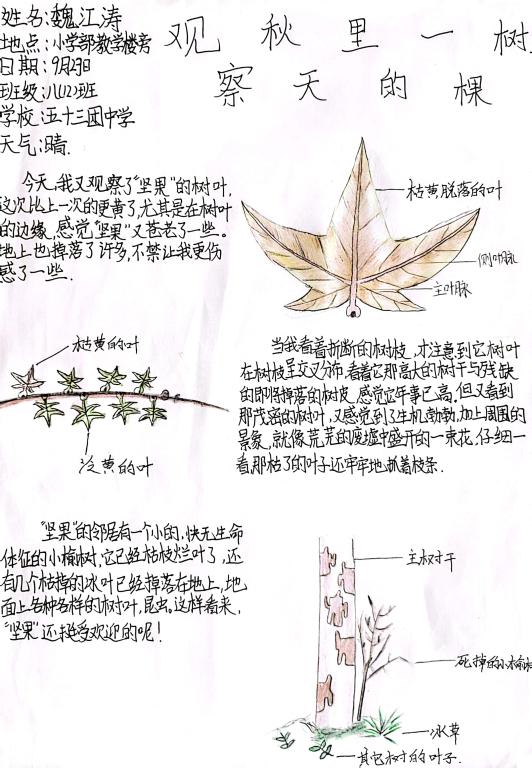 姓名:魏江涛
地点:小学部教学楼旁
日期:9月23日
班级:八(12)班
学校:五十三团中学
天气:晴.
观秋里一树
察天的棵
今天,我又观察了“坚果”的树叶,
这次比上一次的更黄了,尤其是在树叶
的边缘,感觉“坚果”又苍老了一些。
地上也掉落了许多,不禁让我更伤
感了一些.
枯黄脱落的叶
侧叶脉
主叶脉
枯黄的叶
泛黄的叶
当我看着折断的树枝,才注意到它树叶
在树枝呈交叉分布,看着它那高大的树干与残缺
的即将掉落的树皮,感觉它年事已高.但又看到
那茂密的树叶,又感觉到了生机勃勃,加上周围的
景象,就像荒芜的废墟中盛开的一束花.仔细一
看,那枯了的叶子还牢牢地抓着枝条.
“坚果”的邻居有一个小的,快无生命
体征的小榆树,它已经枯枝烂叶了,还
有几个枯掉的叶已经掉落在地上,地
面上各种各样的树叶,昆虫.这样看来,
“坚果”还挺受欢迎的呢!
主树干
死掉的小榆树
小草
其它树的叶子.